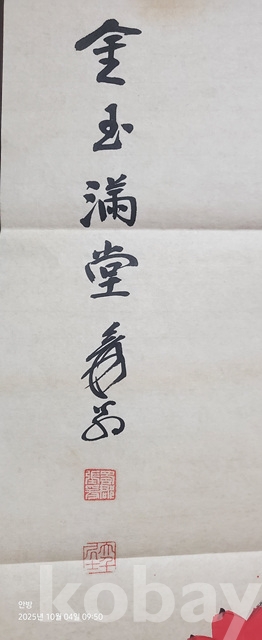 金玉滿堂 爰翁
안방
2025년 10월 04일 09:50
kobay